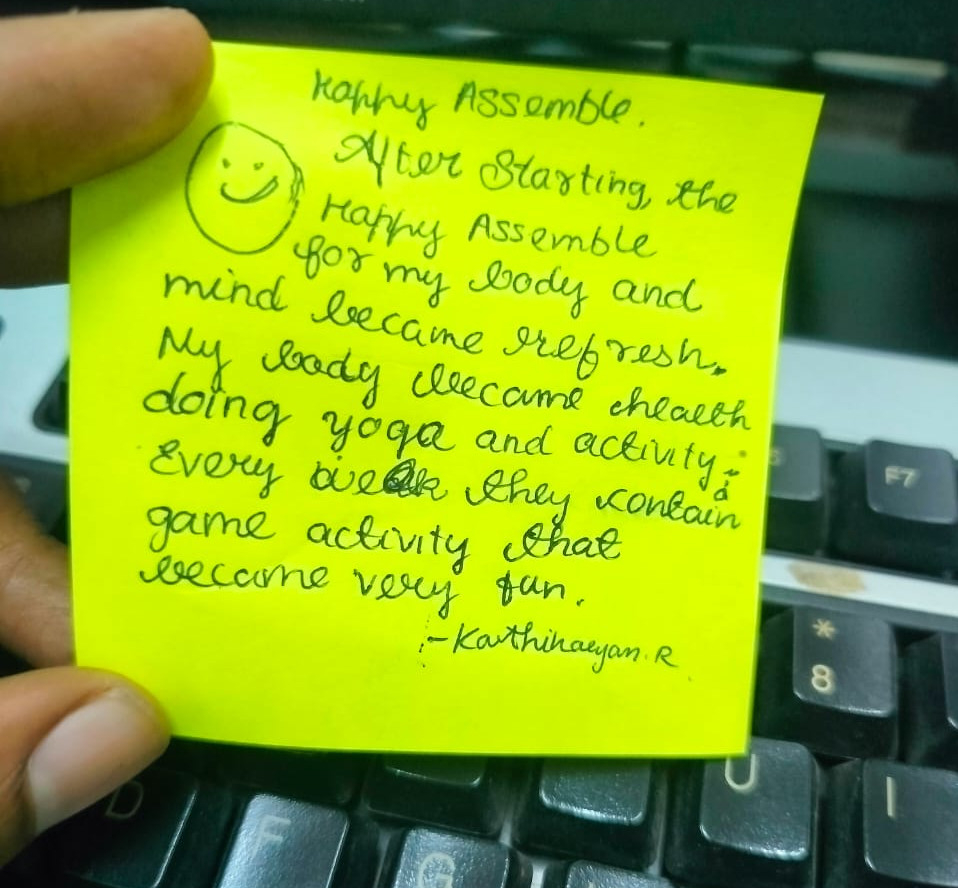 Happy Assemble.
After Starting, the
Happy Assemble
for my body and
mind became refresh.
My body became health
doing yoga and activity.
Every week they contain
game activity that
became very fun.
- Karthikaeyan. R
F7
*
8
U
I
D
F
G